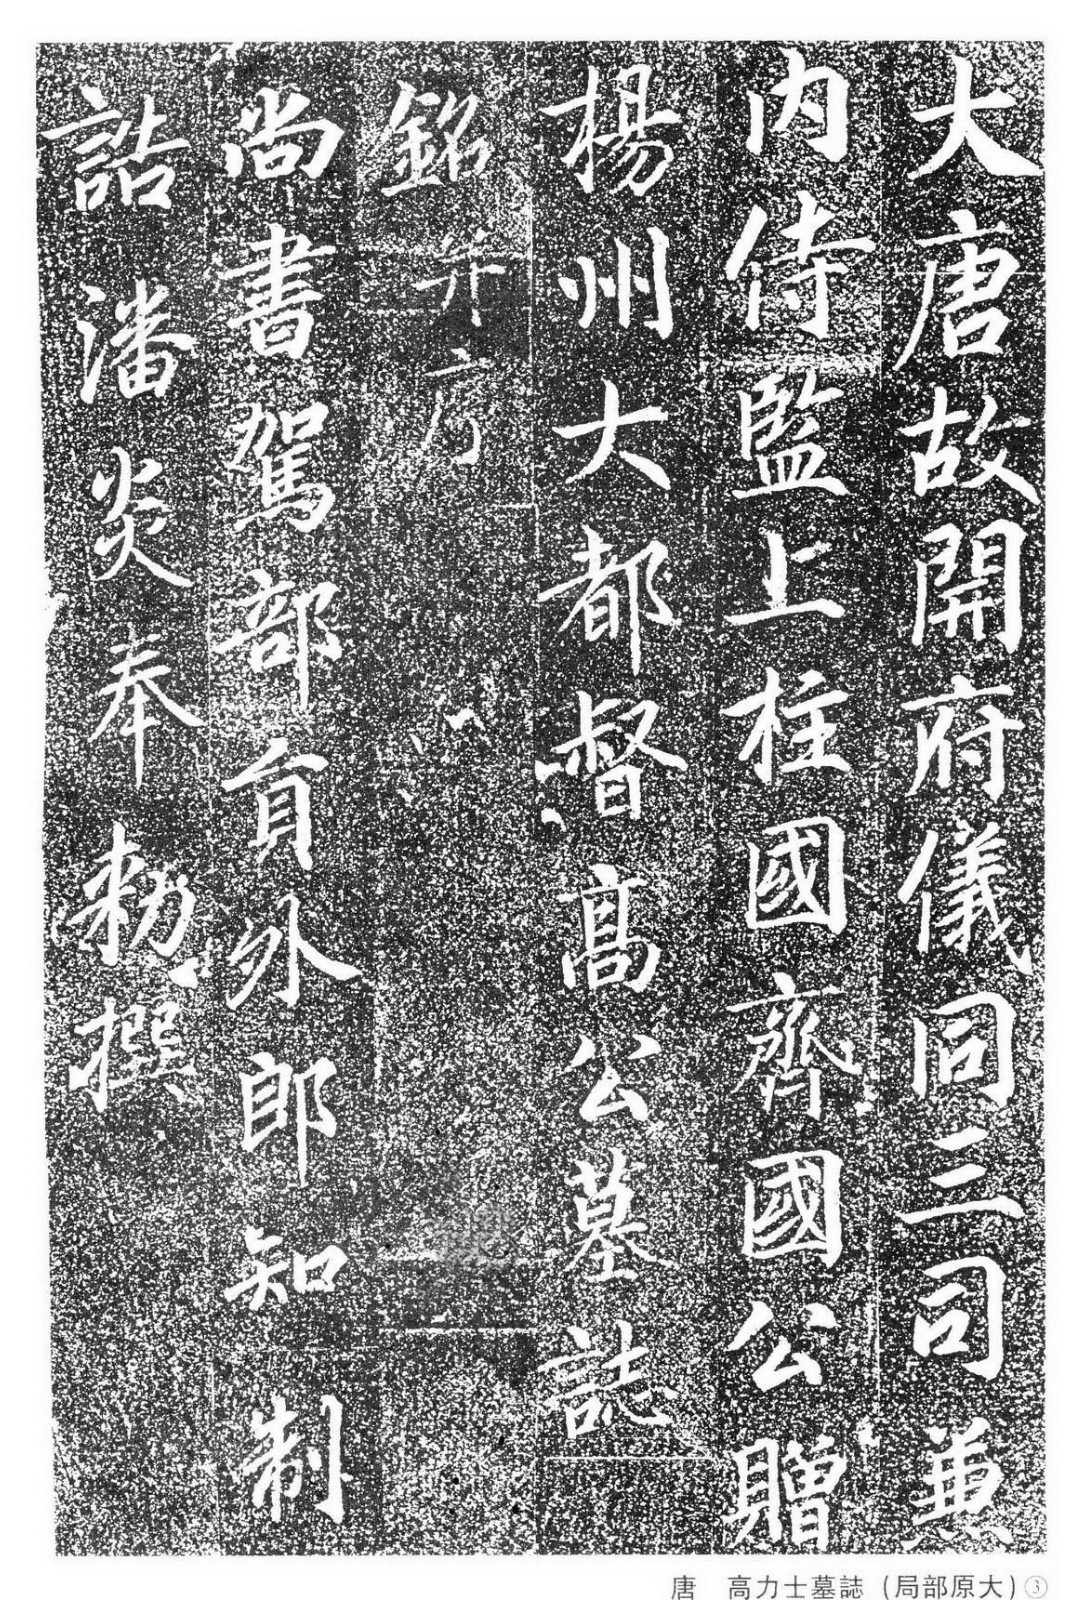 大唐故開府儀同三司兼
内侍監上柱國齊國公贈
楊州大都督高公墓誌
銘并序
尚書駕部員外郎知制
誥潘炎奉勑撰
唐 高力士墓誌（局部原大）③